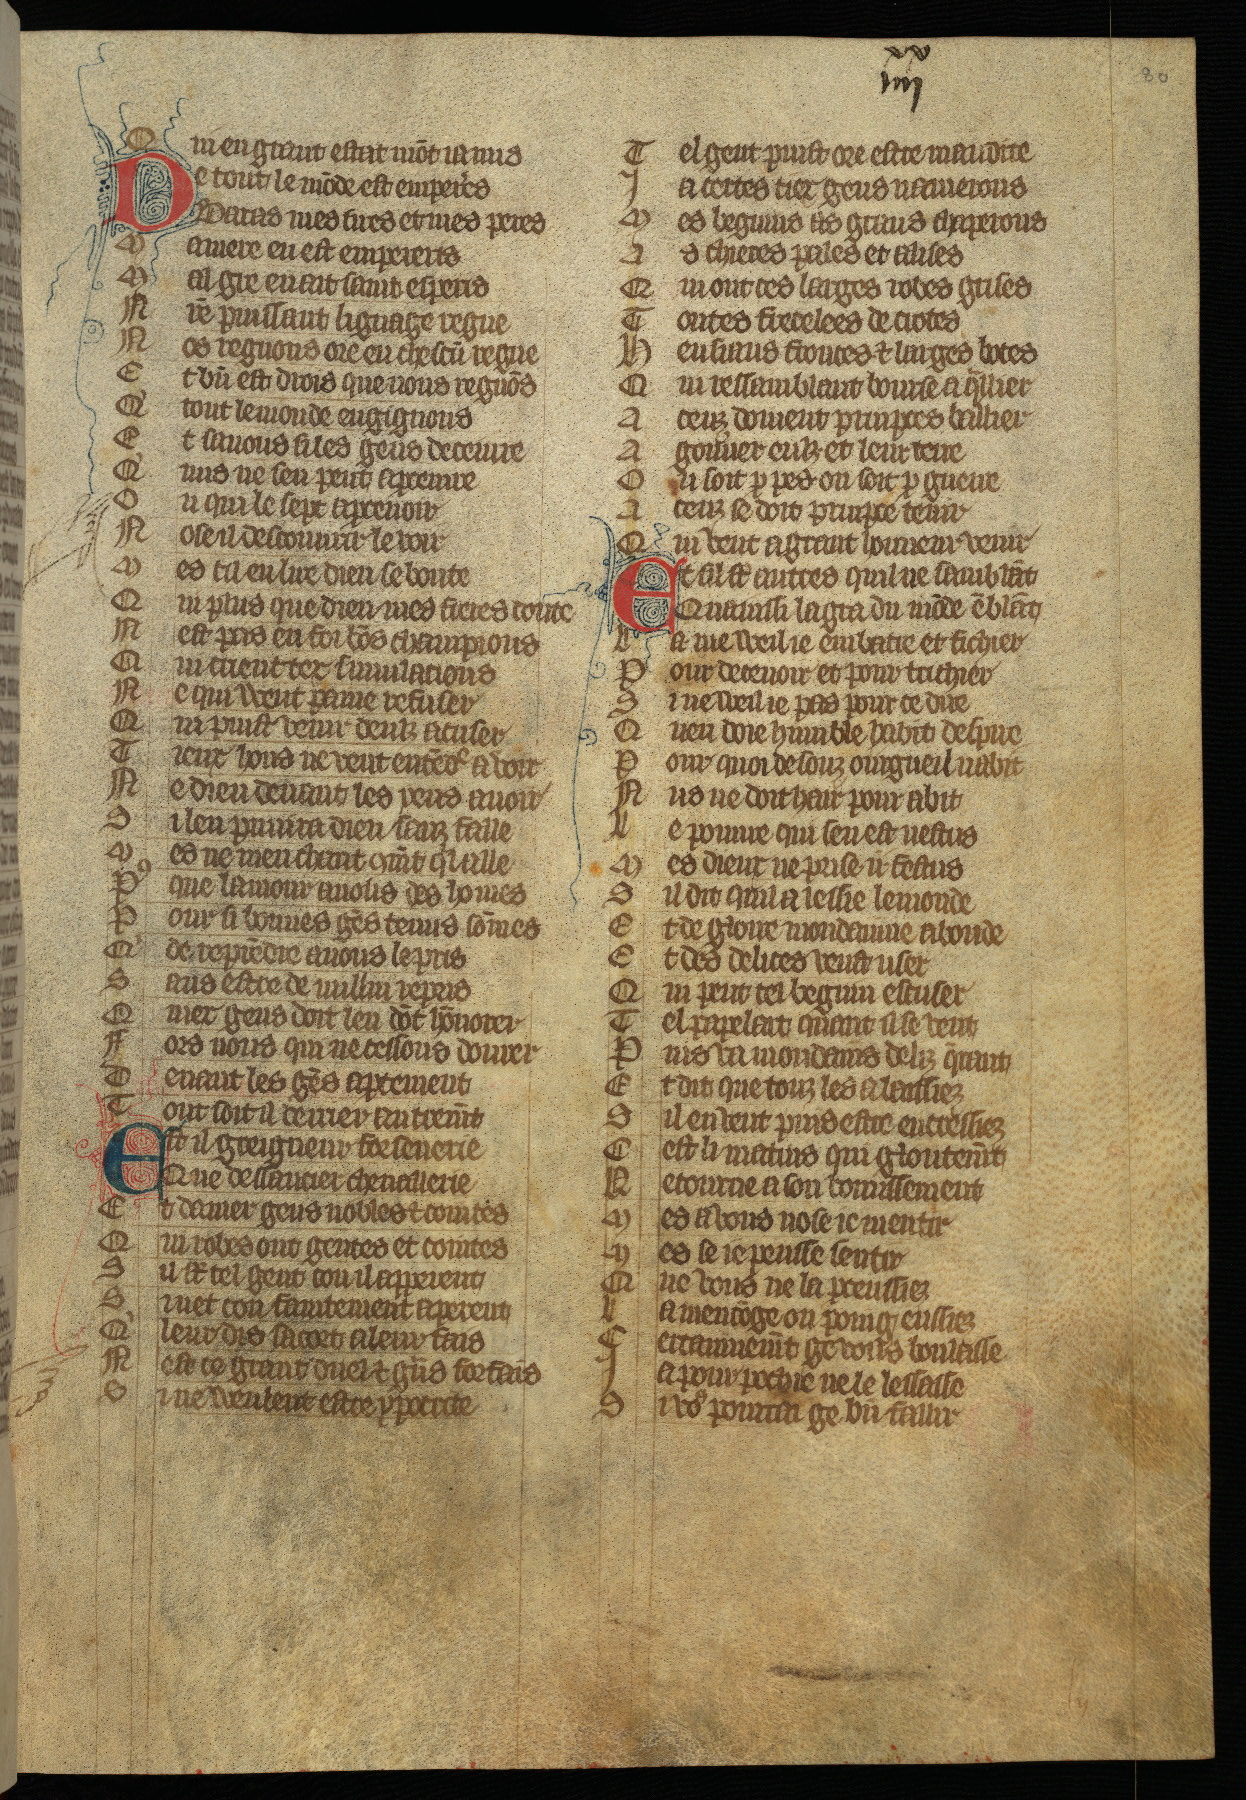 xx
iiij
80
Qui en grant estat mōt ia mis
De tout le mōde est emperes
Baras mes sires et mes peres
Ma mere en est empereris
Mal gre en ait saint esperis
Nr̄e puissant lignage regne
Nos regnons ore en chescū regne
Et bn̄ est drois que nous regnōs
Q' tout le monde engignons
Et sauons si les gens deceuire
Q' nus ne sen peut aperceuire
Ou qui le sept aperceuoir
N ose il descouurir le voir
Mes cil en lire dieu se boute
Qui plus que dieu mes freres doute
Nest pas en foi bōs champions
Qui crient tex simulacions
Ne qui weut paine refuser
Qui puist venir deulz acuser
Tiex hons ne veut entēdre a voir
Ne dieu deuant les yeus auoir
Si len punira dieu sanz falle
Mes ne men chaut cōmt qͥl alle
P9 que lamour auons des homes
Pour si bonnes gēs tenus sōmes
Q' de reprēdre auons le pris
Sans estre de nullui repris
Quiex gens doit len dōt hōnorer
Fors nous qui ne cessons dourer
Deuant les gēs apertement
Tout soit il derrier autremt̄
Est il greigneur forsenerie
Que dessaucier cheuallerie
Et damer gens nobles & cointes
Qui robes ont gentes et cointes
Sil st̄ tel gent con il apperent
Si net con sainement aperent
Q' leur dis sacort a leur fais
Nest ce grant duel & gn̄s sorfais
Si ne weulent estre ypocrite
Tel gent puist ore estre maudite
Ja certes tiex gens namerons
Mes beguins as grans chaperons
As chieres pales et alises
Qui ont ces larges robes grises
Toutes fretelees de crotes
Heusiaus fronces & larges botes
Qui ressamblant bourse a qͣllier
A ceulz doiuent princes baillier
A gouner eulz et leur terre
Ou soit p pes ou soit p guerre
A ceulz se doit prince tenir
Qui veut a grant honneur venir
Et sil st̄ autres quil ne samblāt
Quainssi la gra du mōde ēblāt
La me weil ie embatre et fichier
Pour deceuoir et pour trichier
Si ne weil ie pas pour ce dire
Quen doie humble habit despire
Pour quoi desouz ourgueil nabit
Nus ne doit hair pour abit
Le poure qui sen est uestus
Mes diex ne prise ii festus
Sil dit quil a lessie le monde
Et de gloire mondainne abonde
Et des delices veust user
Qui peut tel beguin escuser
Tel papelart quant il se rent
Puis va mondains deliz querant
Et dit que touz les a laissiez
Sil en veut puis estre encressiez
Cest li matins qui gloutemt̄
Retourne a son vomissement
Mes a vous nose ie mentir
Mes se ie peusse sentir
Que vous ne la perceussiez
La menconge ou poing eussiez
Certainnemt̄ ge vous boulasse
Ja pour pechie ne le lessasse
Si vo9 pourrai ge bn̄ fallir